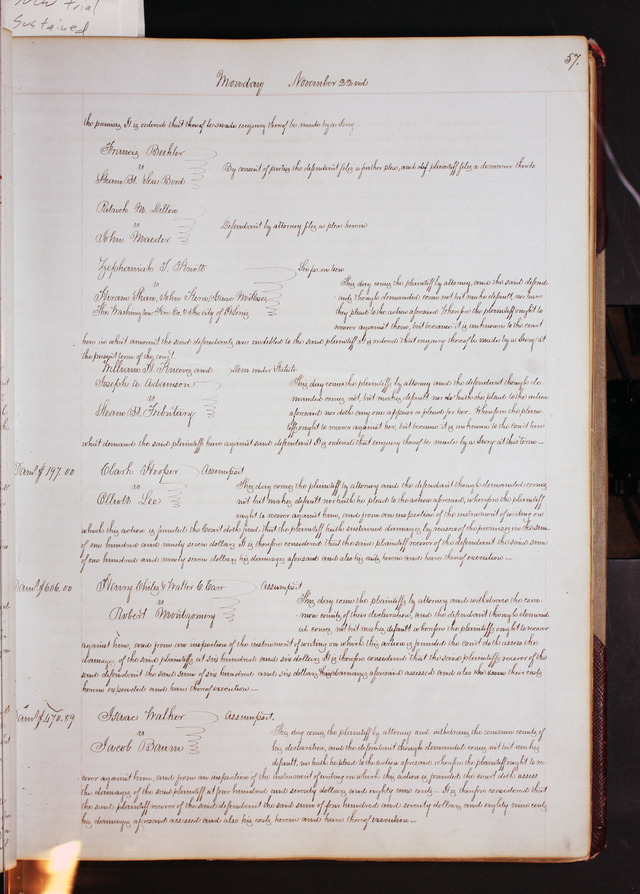 New Trial
Sustained
57.
Monday November 22nd
the premises It is ordered that thereof be made enquiry thereof be made by a Jury
Francis Beehler
vs
Steam Bt. Sea Bird
By consent of parties the defendant files a further plea, and plaintiff files a demurrer thereto
M. Dillon
vs
John Maeder
Defendant by attorney files a plea herein
Zephaniah T.
vs
Hiram Shaw, John Kern, Isaac
The Washington Fire Co. & the city of St Louis
Scifa on lien
This day comes the plaintiff by attorney, and the said defend
ants, though demanded comes not but make default, nor have
they plead to the action aforesaid Wherefore the plaintiff ought to
recover against them, but because it is unknown to the court
here in what amount the said defendants are indebted to the said plaintiff It is ordered that enquiry thereof be made by a Jury at
the present term of the court.
William H. and
Joseph A. Adamson
vs
Steam Bt. Tributary
Item under Statute
This day comes the plaintiffs by attorney and the defendant though de-
manded comes not, but makes default nor hath she plead to the action
aforesaid nor doth any one appear or plead for her. Wherefore the plain-
tiffs ought to recover against her, but because it is unknown to the court here
what demand the said plaintiffs have against said defendant It is ordered that enquiry thereof be made by a Jury at this term —
Dam's $197.00
Clark Hooper
vs
Elliott Lee
Assumpsit
This day comes the plaintiff by attorney and the defendant though demanded comes
not but makes default nor hath he plead to the action aforesaid, wherefore the plaintiff
ought to recover against him, and from an inspection of the instrument of writing on
which this action is founded the Court doth find that the plaintiff hath sustained damages by reason of the premises in the sum
of one hundred and ninety seven dollars. It is therefore considered that the said plaintiff recover of the defendant the said sum
of one hundred and ninety seven dollars his damages aforesaid and also his costs herein and have thereof execution —
Dam's $606.00
Henry Chiles & Walter C. Carr
vs
Robert Montgomery
Assumpsit
This day come the plaintiffs by attorney and withdraws the com-
mon counts of their declaration, and the defendant though demand
ed comes not but makes default wherefore the plaintiffs ought to recover
against him, and from an inspection of the instrument of writing on which this action is founded the court doth assess the
damages of the said plaintiffs at six hundred and six dollars It is therefore considered that the said plaintiffs recover of the
said defendant the said sum of six hundred and six dollars their damages aforesaid assessed and also their costs
herein expended and have thereof execution —
Dam's $470.89
Isaac Walker
vs
Jacob Baum
Assumpsit.
This day comes the plaintiff by attorney and withdraws the common counts of
his declaration, and the defendant though demanded comes not but makes
default, nor hath he plead to the action aforesaid wherefore the plaintiff ought to re-
cover against him, and from an inspection of the instrument of writing on which this action is founded the court doth assess
the damages of the said plaintiff at four hundred and seventy dollars and eighty nine cents — It is therefore considered that
the said plaintiff recover of the said defendant the said sum of four hundred and seventy dollars and eighty nine cents
his damages aforesaid assessed and also his costs herein and have thereof execution —